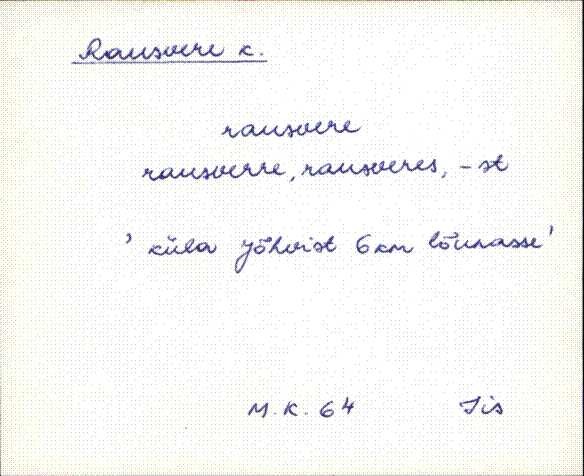 Rausvere k.
rausvere
rausverre, rausveres, -st
' küla Jõhvist 6 km lõunasse '
M.K. 64 Iis